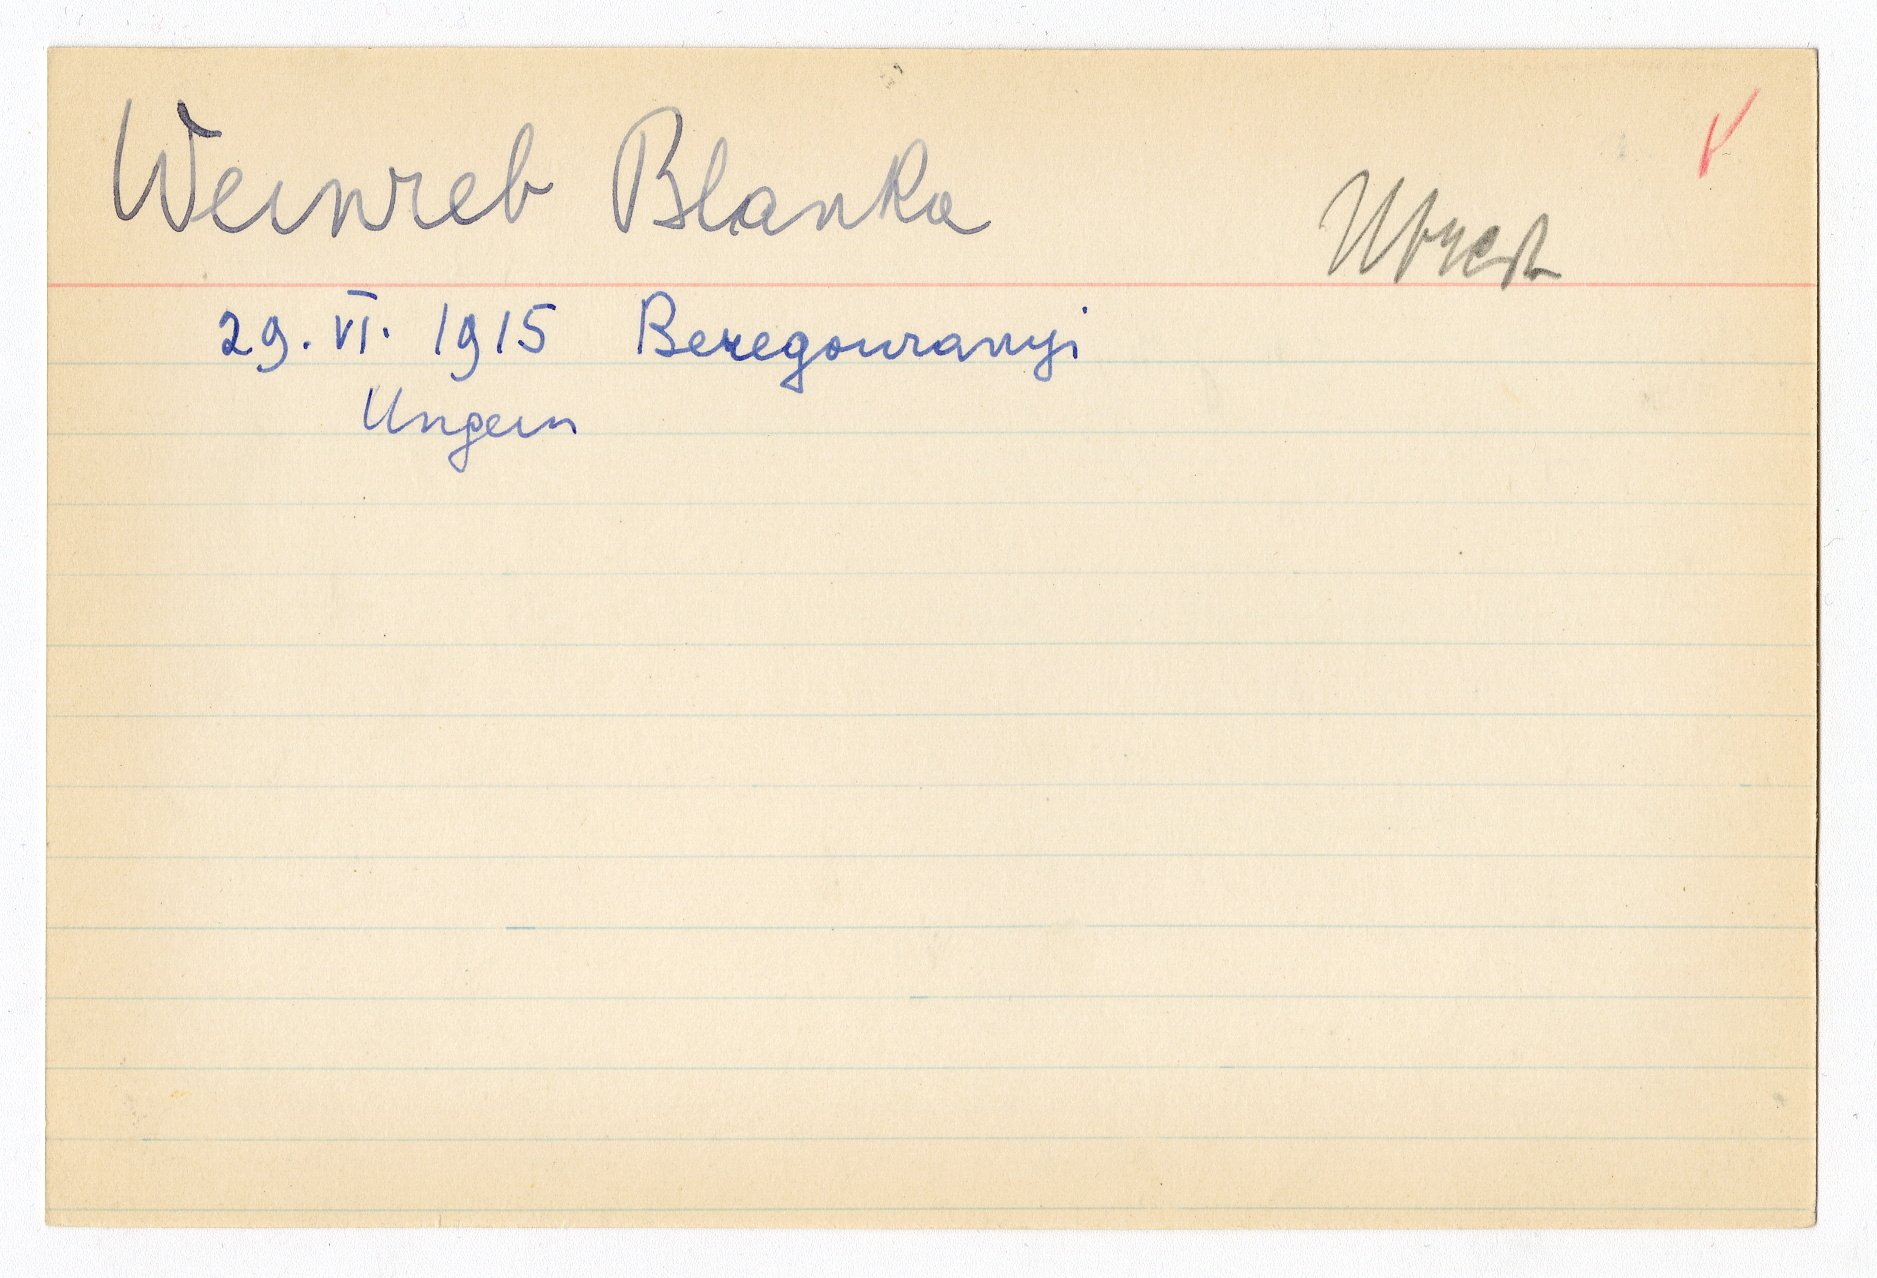 Weinreb Blanka
29. VI. 1915 Beregouranyi
Ungern